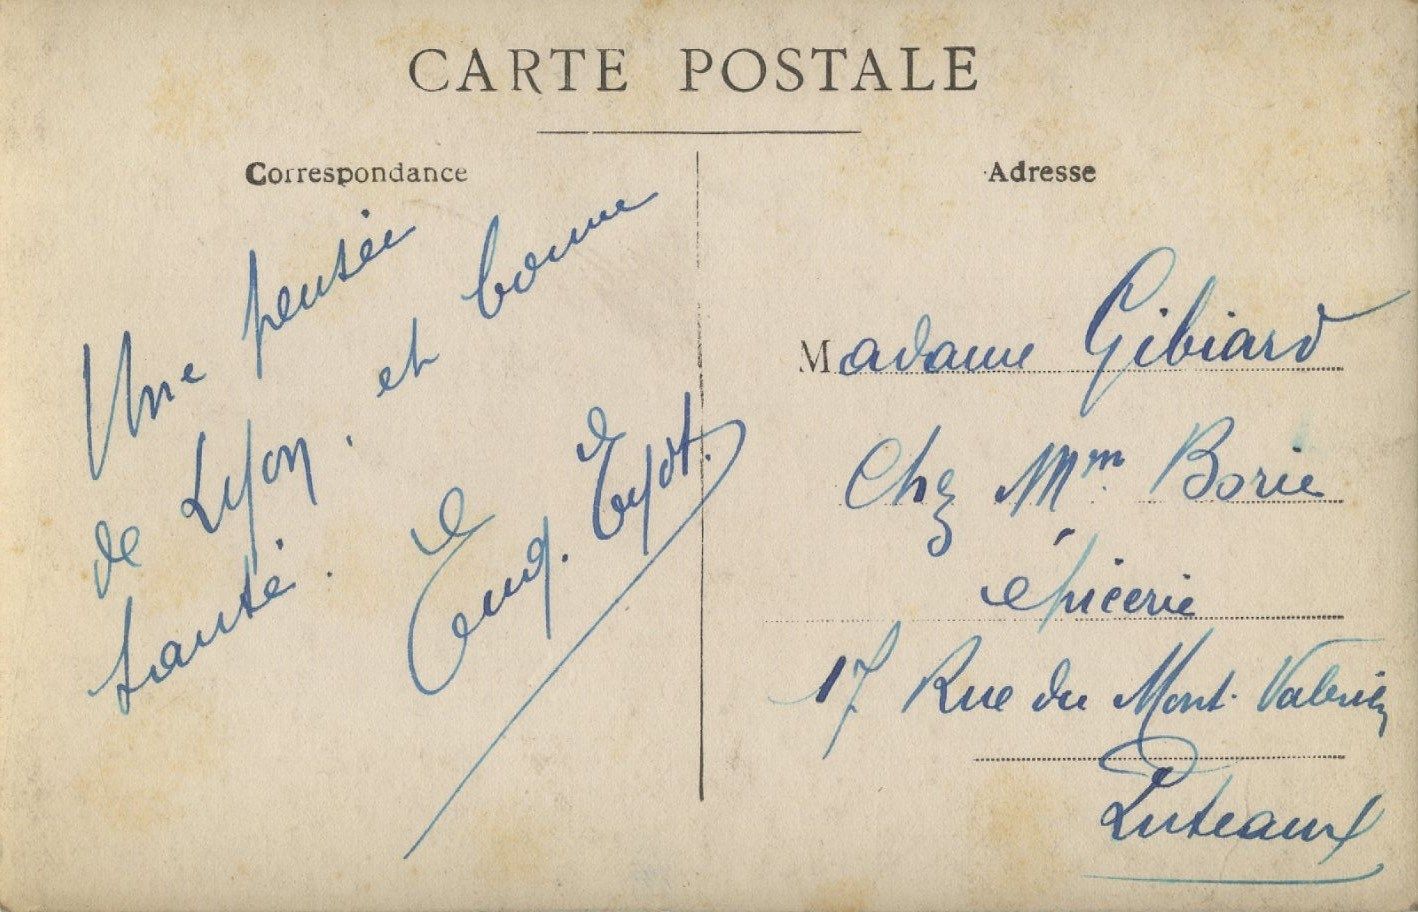 CARTE POSTALE
Correspondance
Une pensée
de Lyon, et bonne
santé.
Eug. Eyot.
Adresse
Madame Gibiard
Chez Mm Borie
épicerie
17 Rue du Mont-Valerien
Puteaux